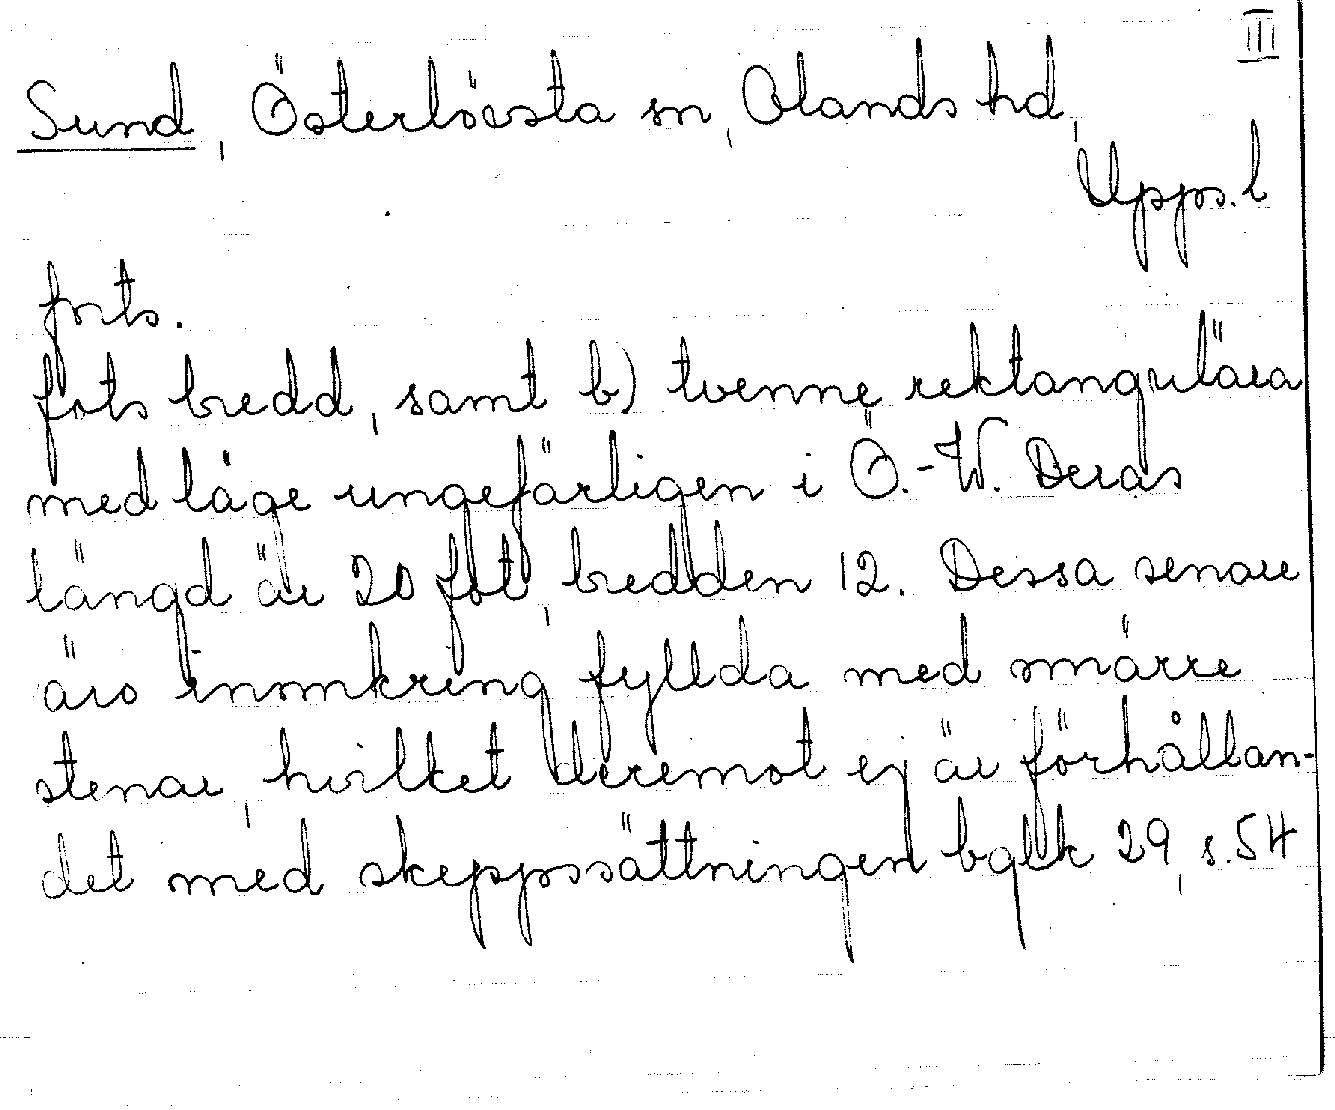 III
Sund, Österlövsta sn, Olands hd,
Upps. l
forts.
fots bredd, samt b) tvenne rektangulära
med läge ungefärligen i Ö.-W. Deras
längd är 20 fot, bredden 12. Dessa senare
äro inomkring fyllda med smärre
stenar, hvilket deremot ej är förhållan-
det med skeppssättningen 29, s. 54